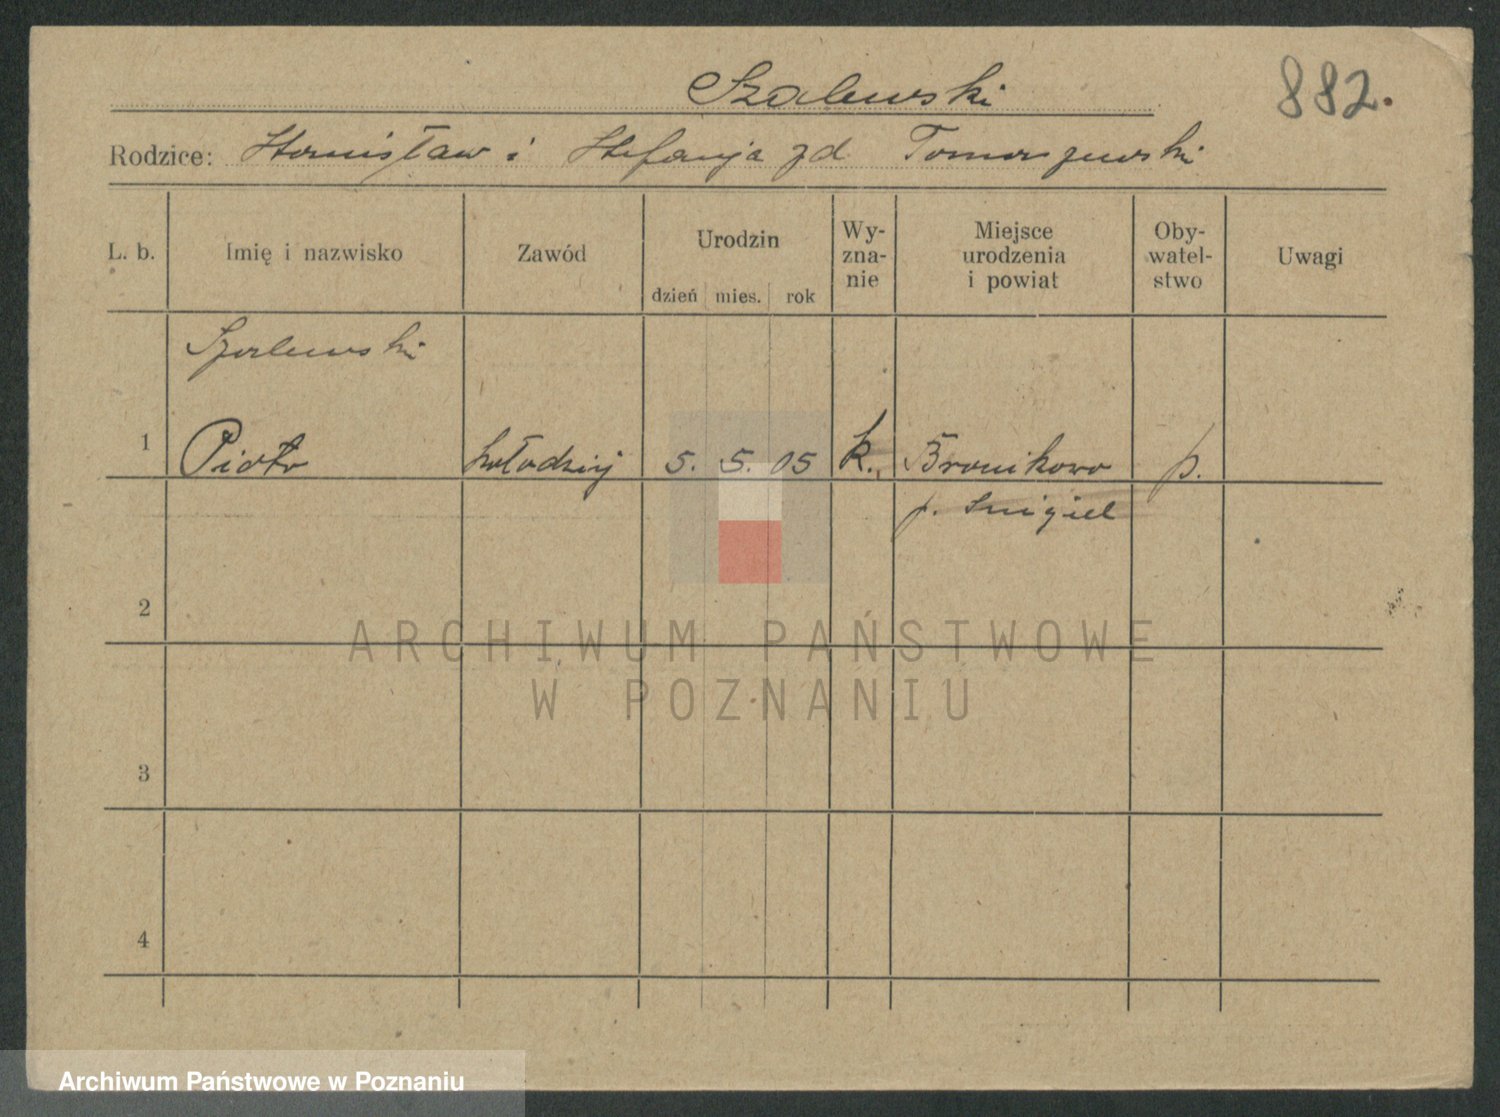 Szalewski
882.
Rodzice: Stanisław i Stefanja zd Tomaszewski
L. b.
Imię i nazwisko
Zawód
Urodzin
dzień mies. rok
Wy-
zna-
nie
Miejsce
urodzenia
i powiat
Oby-
watel-
stwo
Uwagi
Szalewski
1 Piotr kołodziej 5. 5. 05 k. Bronikowo p.
p. Smigiel
2
ARCHIWUM PAŃSTWOWE
W POZNANIU
3
4
Archiwum Państwowe w Poznaniu